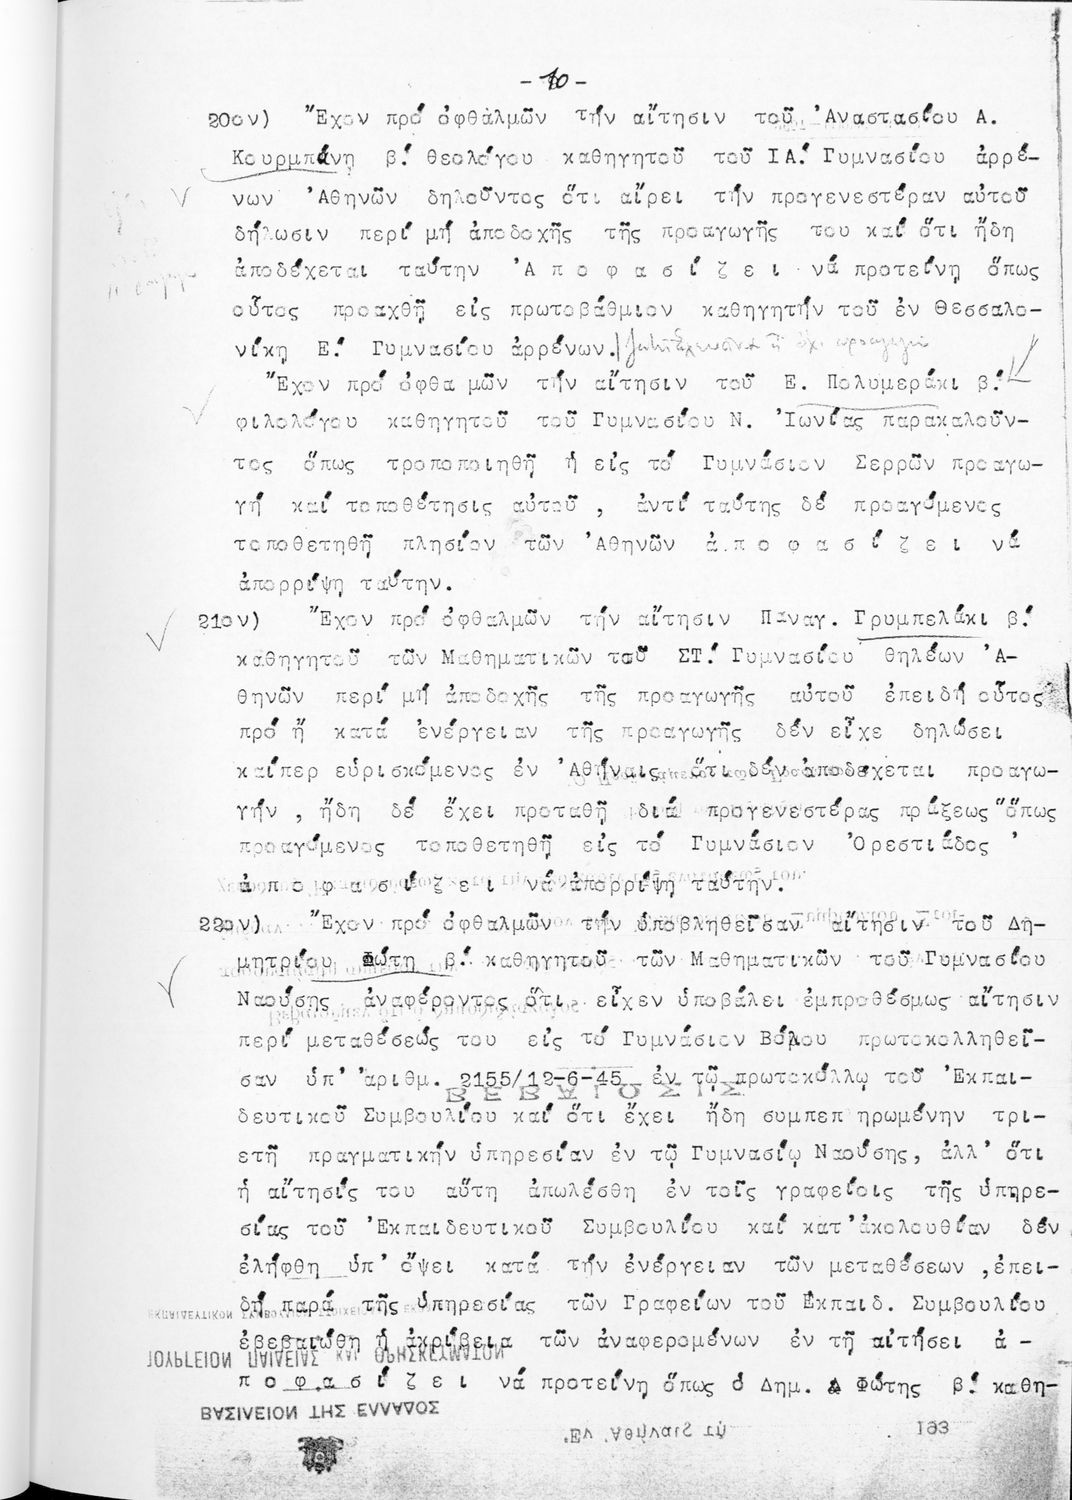 - 10 -
20ον) Ἔχον πρό ὀφθαλμῶν τήν αἴτησιν τοῦ Ἀναστασίου Α.
Κουρμπάνη β΄ θεολόγου καθηγητοῦ τοῦ ΙΑ΄ Γυμνασίου ἀρρέ-
νων Ἀθηνῶν δηλοῦντος ὅτι αἴρει τήν προγενεστέραν αὐτοῦ
δήλωσιν περί μή ἀποδοχῆς τῆς προαγωγῆς του καί ὅτι ἤδη
ἀποδέχεται ταύτην Ἀ π ο φ α σ ί ζ ε ι νά προτείνη ὅπως
οὗτος προαχθῆ εἰς πρωτοβάθμιον καθηγητήν τοῦ ἐν Θεσσαλο-
νίκη Ε΄ Γυμνασίου ἀρρένων.
Ἔχον πρό ὀφθα μῶν τήν αἴτησιν τοῦ Ε. Πολυμεράκι β΄
φιλολόγου καθηγητοῦ τοῦ Γυμνασίου Ν. Ἰωνίας παρακαλοῦν-
τος ὅπως τροποποιηθῆ ἡ εἰς τό Γυμνάσιον Σερρῶν προαγω-
γή καί τοποθέτησις αὐτοῦ , ἀντί ταύτης δέ προαγόμενος
τοποθετηθῆ πλησίον τῶν Ἀθηνῶν ἀ π ο φ α σ ί ζ ε ι νά
ἀπορρίψη ταύτην.
21ον) Ἔχον πρό ὀφθαλμῶν τήν αἴτησιν Παναγ. Γρυμπελάκι β΄
καθηγητοῦ τῶν Μαθηματικῶν τοῦ ΣΤ΄ Γυμνασίου θηλέων Ἀ-
θηνῶν περί μή ἀποδοχῆς τῆς προαγωγῆς αὐτοῦ ἐπειδή οὗτος
πρό ἤ κατά ἐνέργειαν τῆς προαγωγῆς δέν εἶχε δηλώσει
καίπερ εὑρισκόμενος ἐν Ἀθήναις ὅτι δέν ἀποδέχεται προαγω-
γήν , ἤδη δέ ἔχει προταθῆ διά προγενεστέρας πράξεως "ὅπως
προαγόμενος τοποθετηθῆ εἰς τό Γυμνάσιον Ὀρεστιάδος '
ἀ π ο φ α σ ί ζ ε ι νά ἀπορρίψη ταύτην.
22ον) Ἔχον πρό ὀφθαλμῶν τήν ὑποβληθεῖσαν αἴτησιν τοῦ Δη-
μητρίου Φώτη β΄ καθηγητοῦ τῶν Μαθηματικῶν τοῦ Γυμνασίου
Ναούσης ἀναφέροντος ὅτι εἶχεν ὑποβάλει ἐμπροθέσμως αἴτησιν
περί μεταθέσεώς του εἰς τό Γυμνάσιον Βόλου πρωτοκολληθεῖ-
σαν ὑπ' ἀριθμ. 2155/12-6-45 ἐν τῷ πρωτοκόλλῳ τοῦ Ἐκπαι-
δευτικοῦ Συμβουλίου καί ὅτι ἔχει ἤδη συμπεπ ηρωμένην τρι-
ετῆ πραγματικήν ὑπηρεσίαν ἐν τῷ Γυμνασίῳ Ναούσης, ἀλλ' ὅτι
ἡ αἴτησίς του αὕτη ἀπωλέσθη ἐν τοῖς γραφείοις τῆς ὑπηρε-
σίας τοῦ Ἐκπαιδευτικοῦ Συμβουλίου καί κατ' ἀκολουθίαν δέν
ἐλήφθη ὑπ' ὄψει κατά τήν ἐνέργειαν τῶν μεταθέσεων ,ἐπει-
δή παρά τῆς ὑπηρεσίας τῶν Γραφείων τοῦ Ἐκπαιδ. Συμβουλίου
ἐβεβαιώθη ἡ ἀκρίβεια τῶν ἀναφερομένων ἐν τῇ αἰτήσει ἀ -
π ο φ α σ ί ζ ε ι νά προτείνη ὅπως ὁ Δημ. Φώτης β΄ καθη-
ΒΕΒΑΙΩΣΙΣ
ΥΠΟΥΡΓΕΙΟΝ ΠΑΙΔΕΙΑΣ ΚΑΙ ΘΡΗΣΚΕΥΜΑΤΩΝ
ΒΑΣΙΛΕΙΟΝ ΤΗΣ ΕΛΛΑΔΟΣ
Ἐν Ἀθήναις τῇ 193